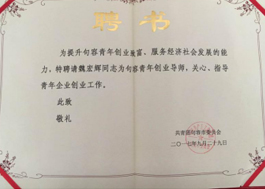 聘书
为提升句容青年创业致富、服务经济社会发展的能
力，特聘请魏宏辉同志为句容青年创业导师，关心、指导
青年企业创业工作。
此致
敬礼
共青团句容市委员会
二〇一七年九月二十九日